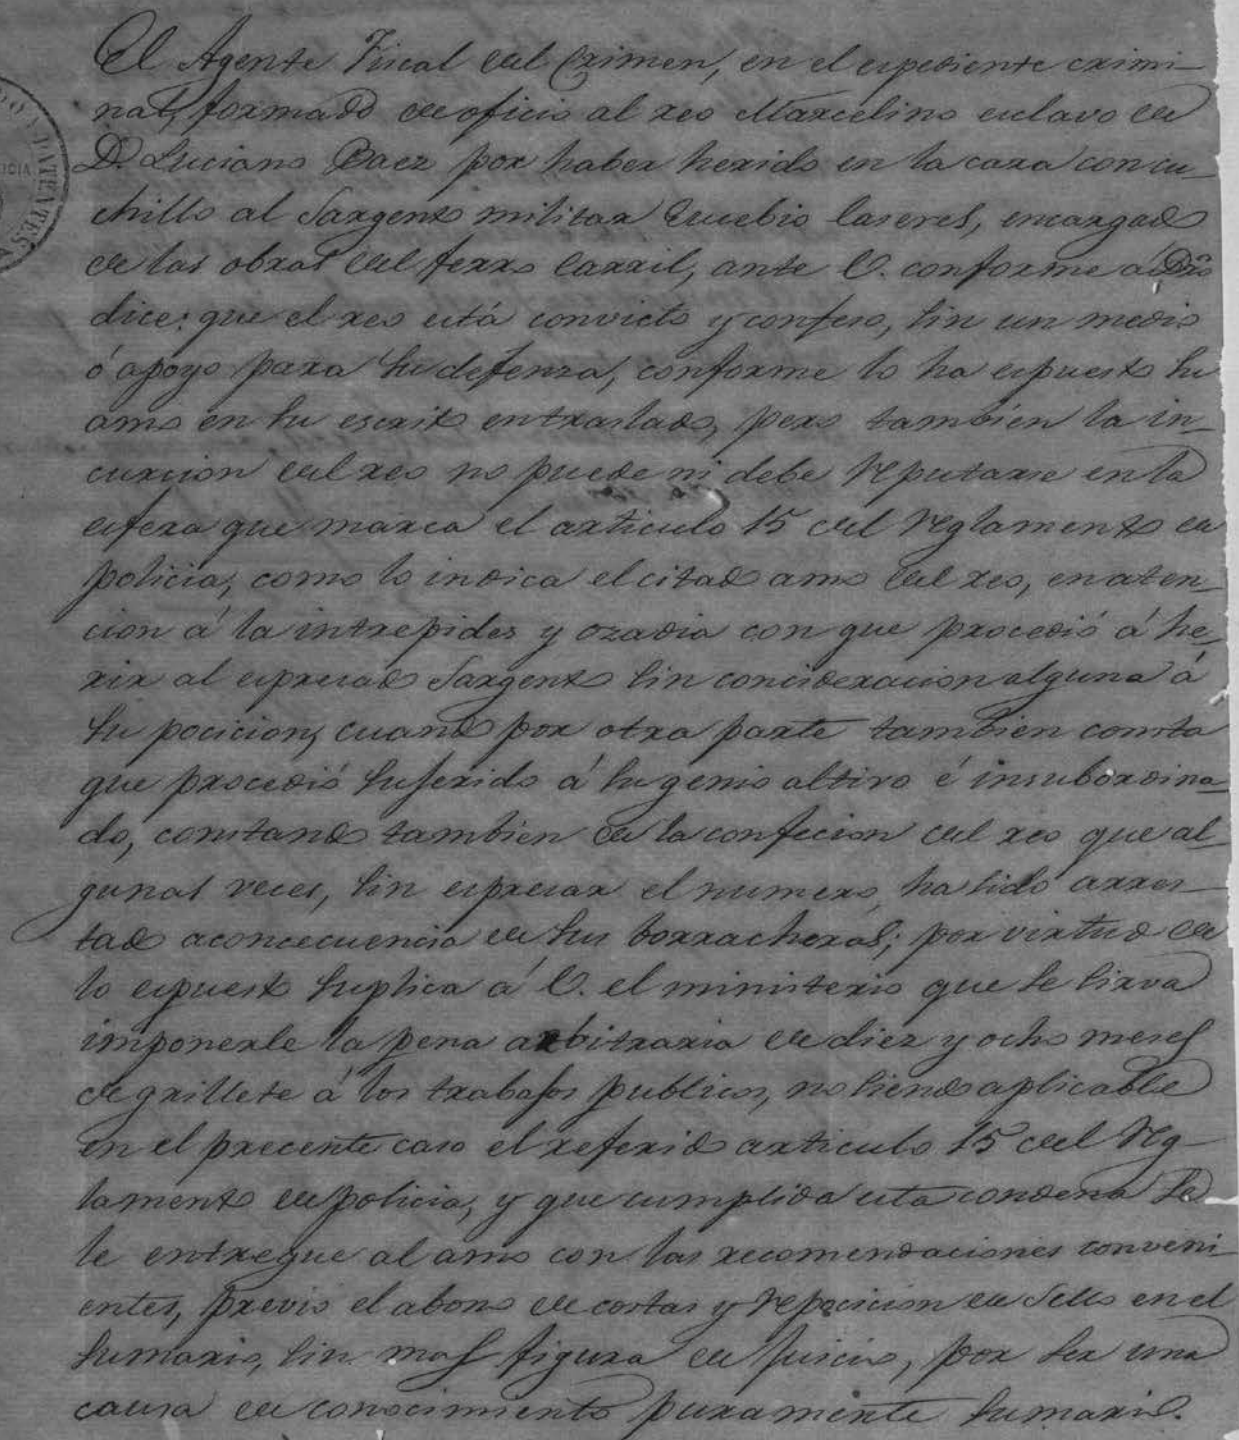 El Agente Fiscal del Crimen, en el espediente crimi-
nal, formado de oficio al reo Marcelino esclavo de
D. Luciano Baez por haber herido en la cara con cu-
chillo al Sargento militar Eucebio Caseres, encargado
de las obras del ferro Carril, ante V. conforme á Dro
dice: que el reo está convicto y confeso, sin un medio
ó apoyo para su defenza, conforme lo ha espuesto su
amo en su escrito en traslado, pero tambien la in-
curcion del reo no puede ni debe reputarse en la
esfera que marca el articulo 15 del reglamento de
policia, como lo indica el citado amo del reo, en aten-
cion á la intrepides y ozadia con que procedió á he-
rir al espresado Sargento sin concideracion alguna á
su pocicion, cuando por otra parte tambien consta
que procedió sujerido á su genio altivo é insubordina-
do, constando tambien de la confecion del reo que al-
gunas veces, sin espresar el numero, ha sido arres-
tado aconcecuencia de sus borracheras; por virtud de
lo espuesto suplica á V. el ministerio que se sirva
imponerle la pena arbitraria de diez y ocho meses
de grillete á los trabajos publicos, no siendo aplicable
en el precente caso el referido articulo 15 del reg-
lamento de policia, y que cumplida esta condena se
le entregue al amo con las recomendaciones conveni-
entes, previo el abono de costas y repocicion de Sello en el
sumario, sin mas figura de juicio, por ser una
causa de conocimiento puramente sumario.